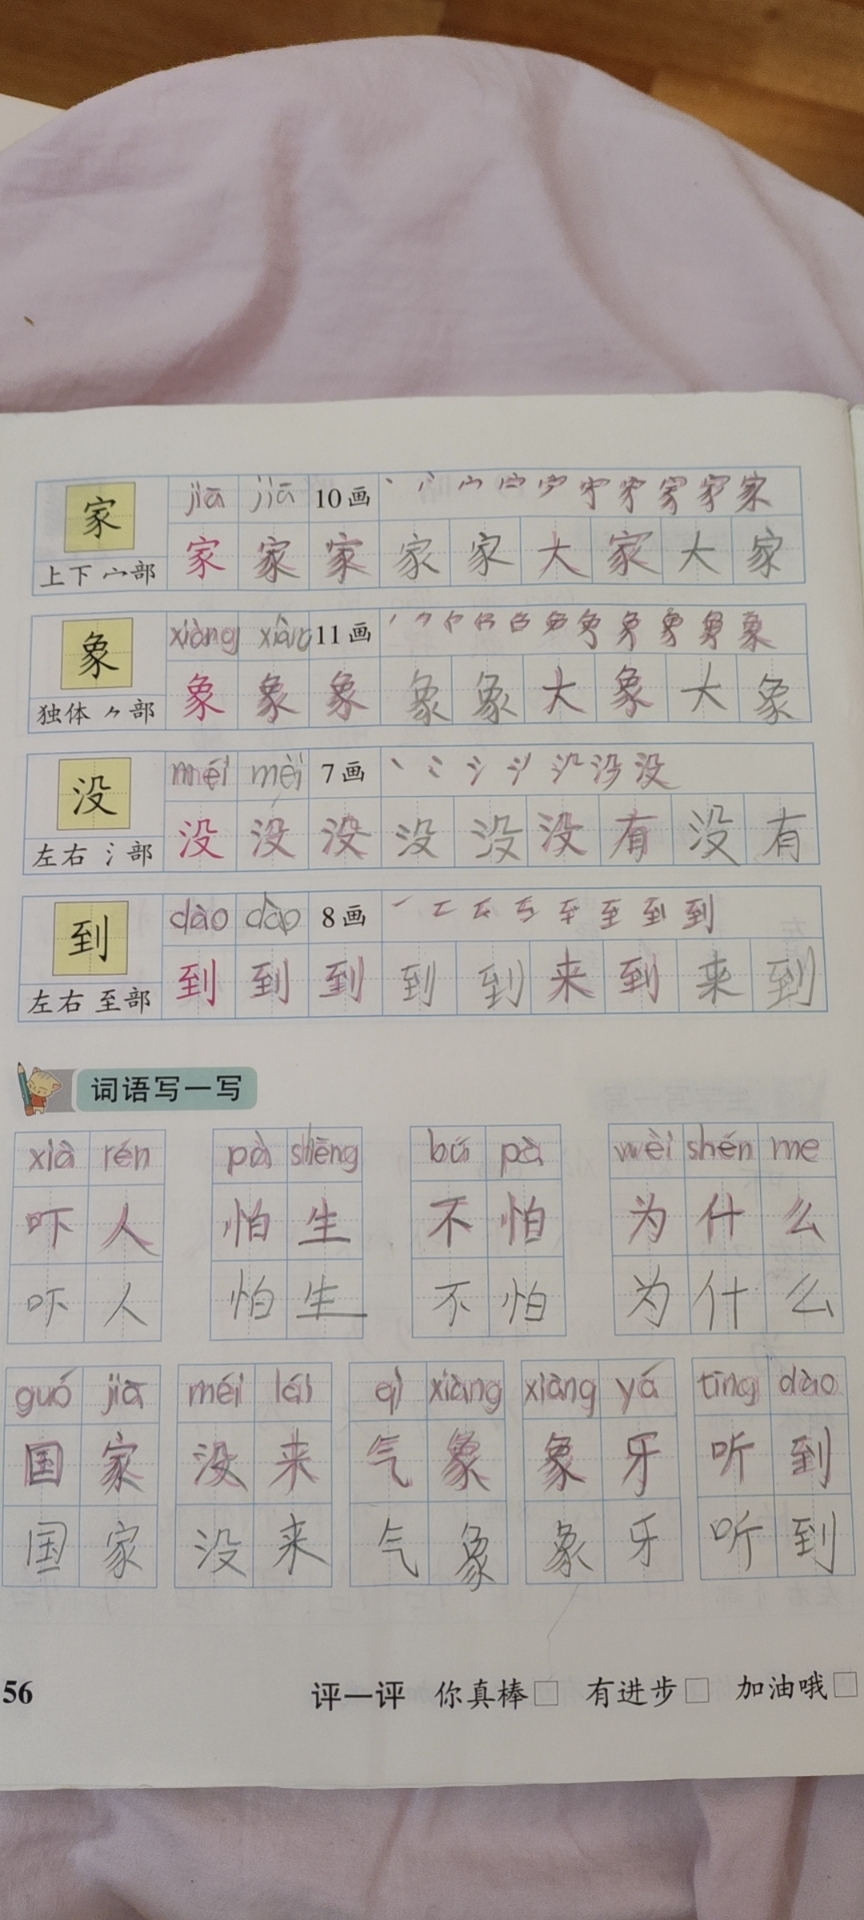 家 jiā jiā 10画 丶 丷 宀 家
上下 宀部 家 家 家 家 家 大 家 大 家
象 xiàng xiàng 11画 象
独体 ⺈部 象 象 象 象 象 大 象 大 象
没 méi méi 7画 丶 冫 氵 没
左右 氵部 没 没 没 没 没 没 有 没 有
到 dào dào 8画 一 至 到
左右 至部 到 到 到 到 到 来 到 来 到
词语写一写
xià rén pà shēng bú pà wèi shén me
吓 人 怕 生 不 怕 为 什 么
吓 人 怕 生 不 怕 为 什 么
guó jiā méi lái qì xiàng xiàng yá tīng dào
国 家 没 来 气 象 象 牙 听 到
国 家 没 来 气 象 象 牙 听 到
56 评一评 你真棒□ 有进步□ 加油哦□